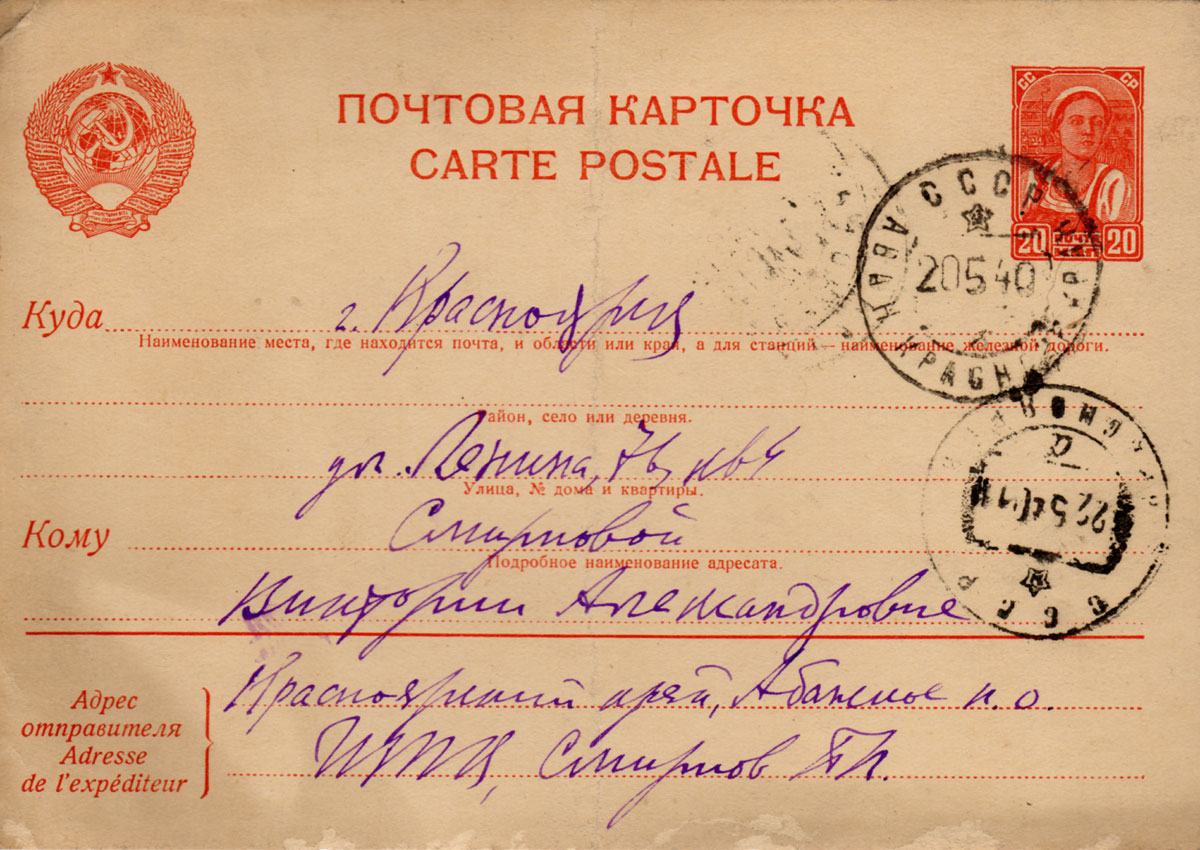 ПОЧТОВАЯ КАРТОЧКА
CARTE POSTALE
СС СР
20 ПОЧТА 20
СССР
АБАН КРАСНОЯР
20 5 40
Куда г. Красноярск
Наименование места, где находится почта, и области или края, а для станций — наименование железной дороги.
Район, село или деревня.
ул. Ленина, 76, кв 4
Улица, № дома и квартиры.
Кому Смирновой
Подробное наименование адресата.
Виктории Александровне
КРАСНОЯРСК
22 5 40
СССР
Адрес
отправителя
Adresse
de l'expéditeur
Красноярский край, Абанское п. о.
Смирнов